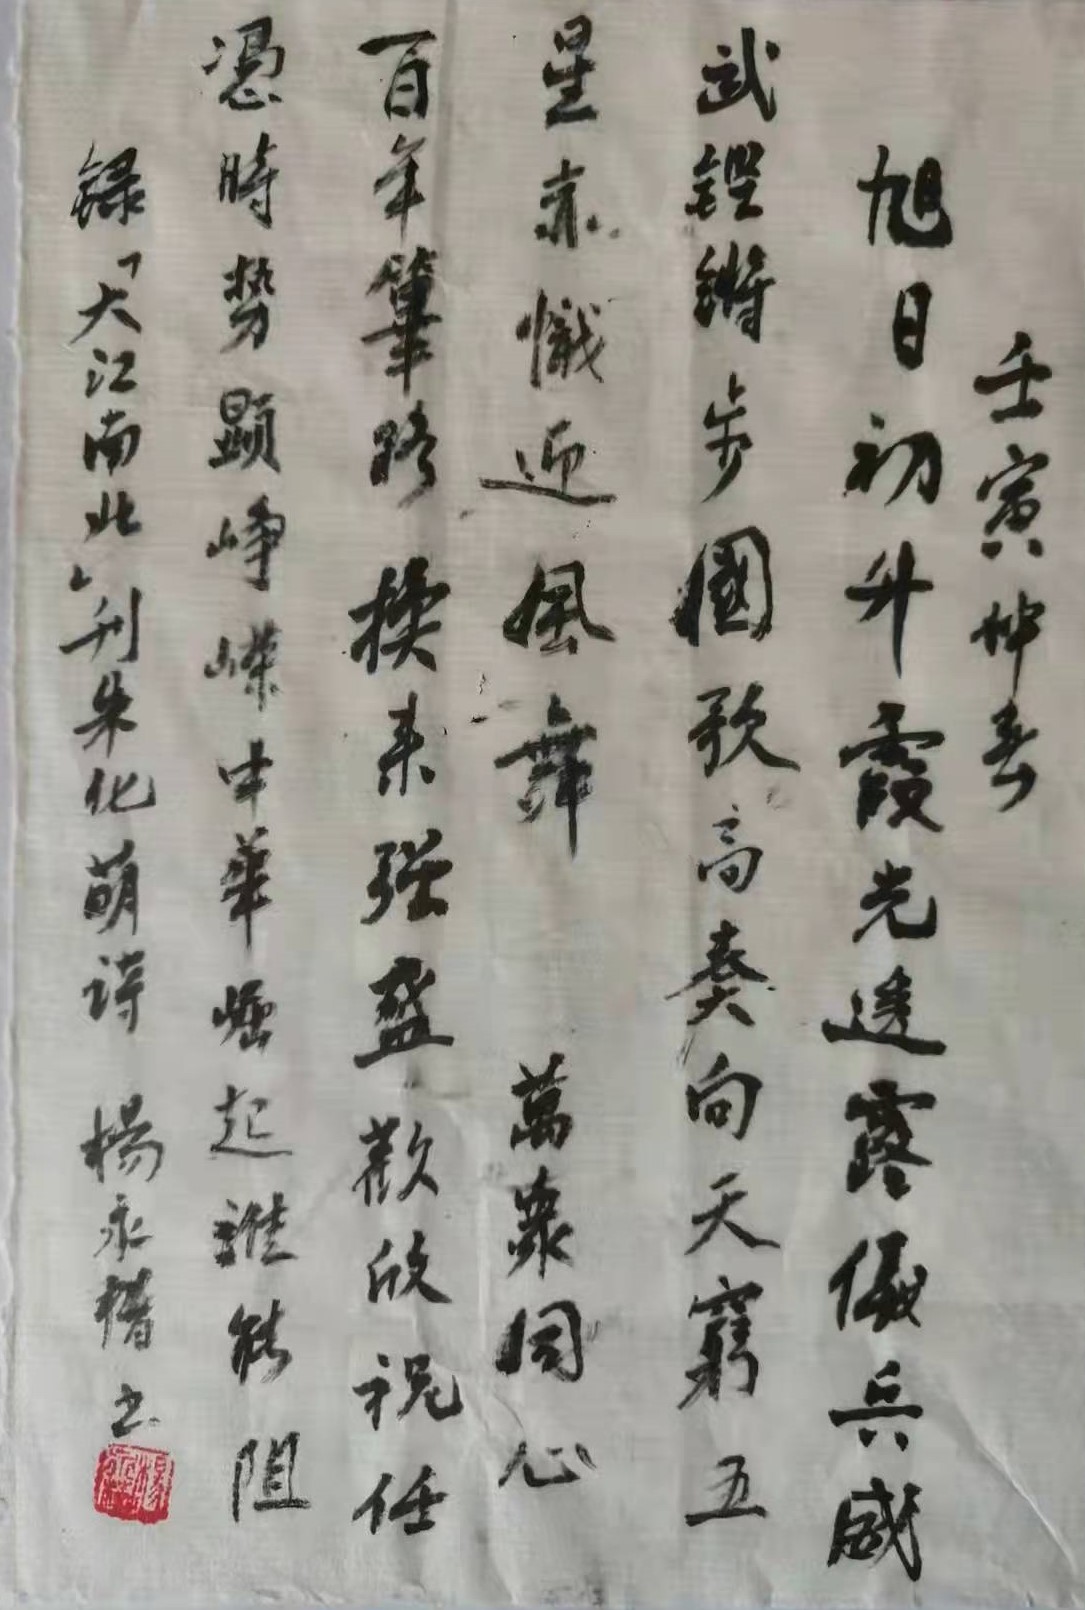 壬寅仲春
旭日初升霞光透露儀兵威
武鏗鏘步國歌高奏向天穹五
星赤幟迎風舞 萬衆同心
百年篳路換來强盛歡欣祝任
憑時勢顯崢嶸中華崛起誰能阻
録「大江南北」刊朱化萌詩 楊永楷书